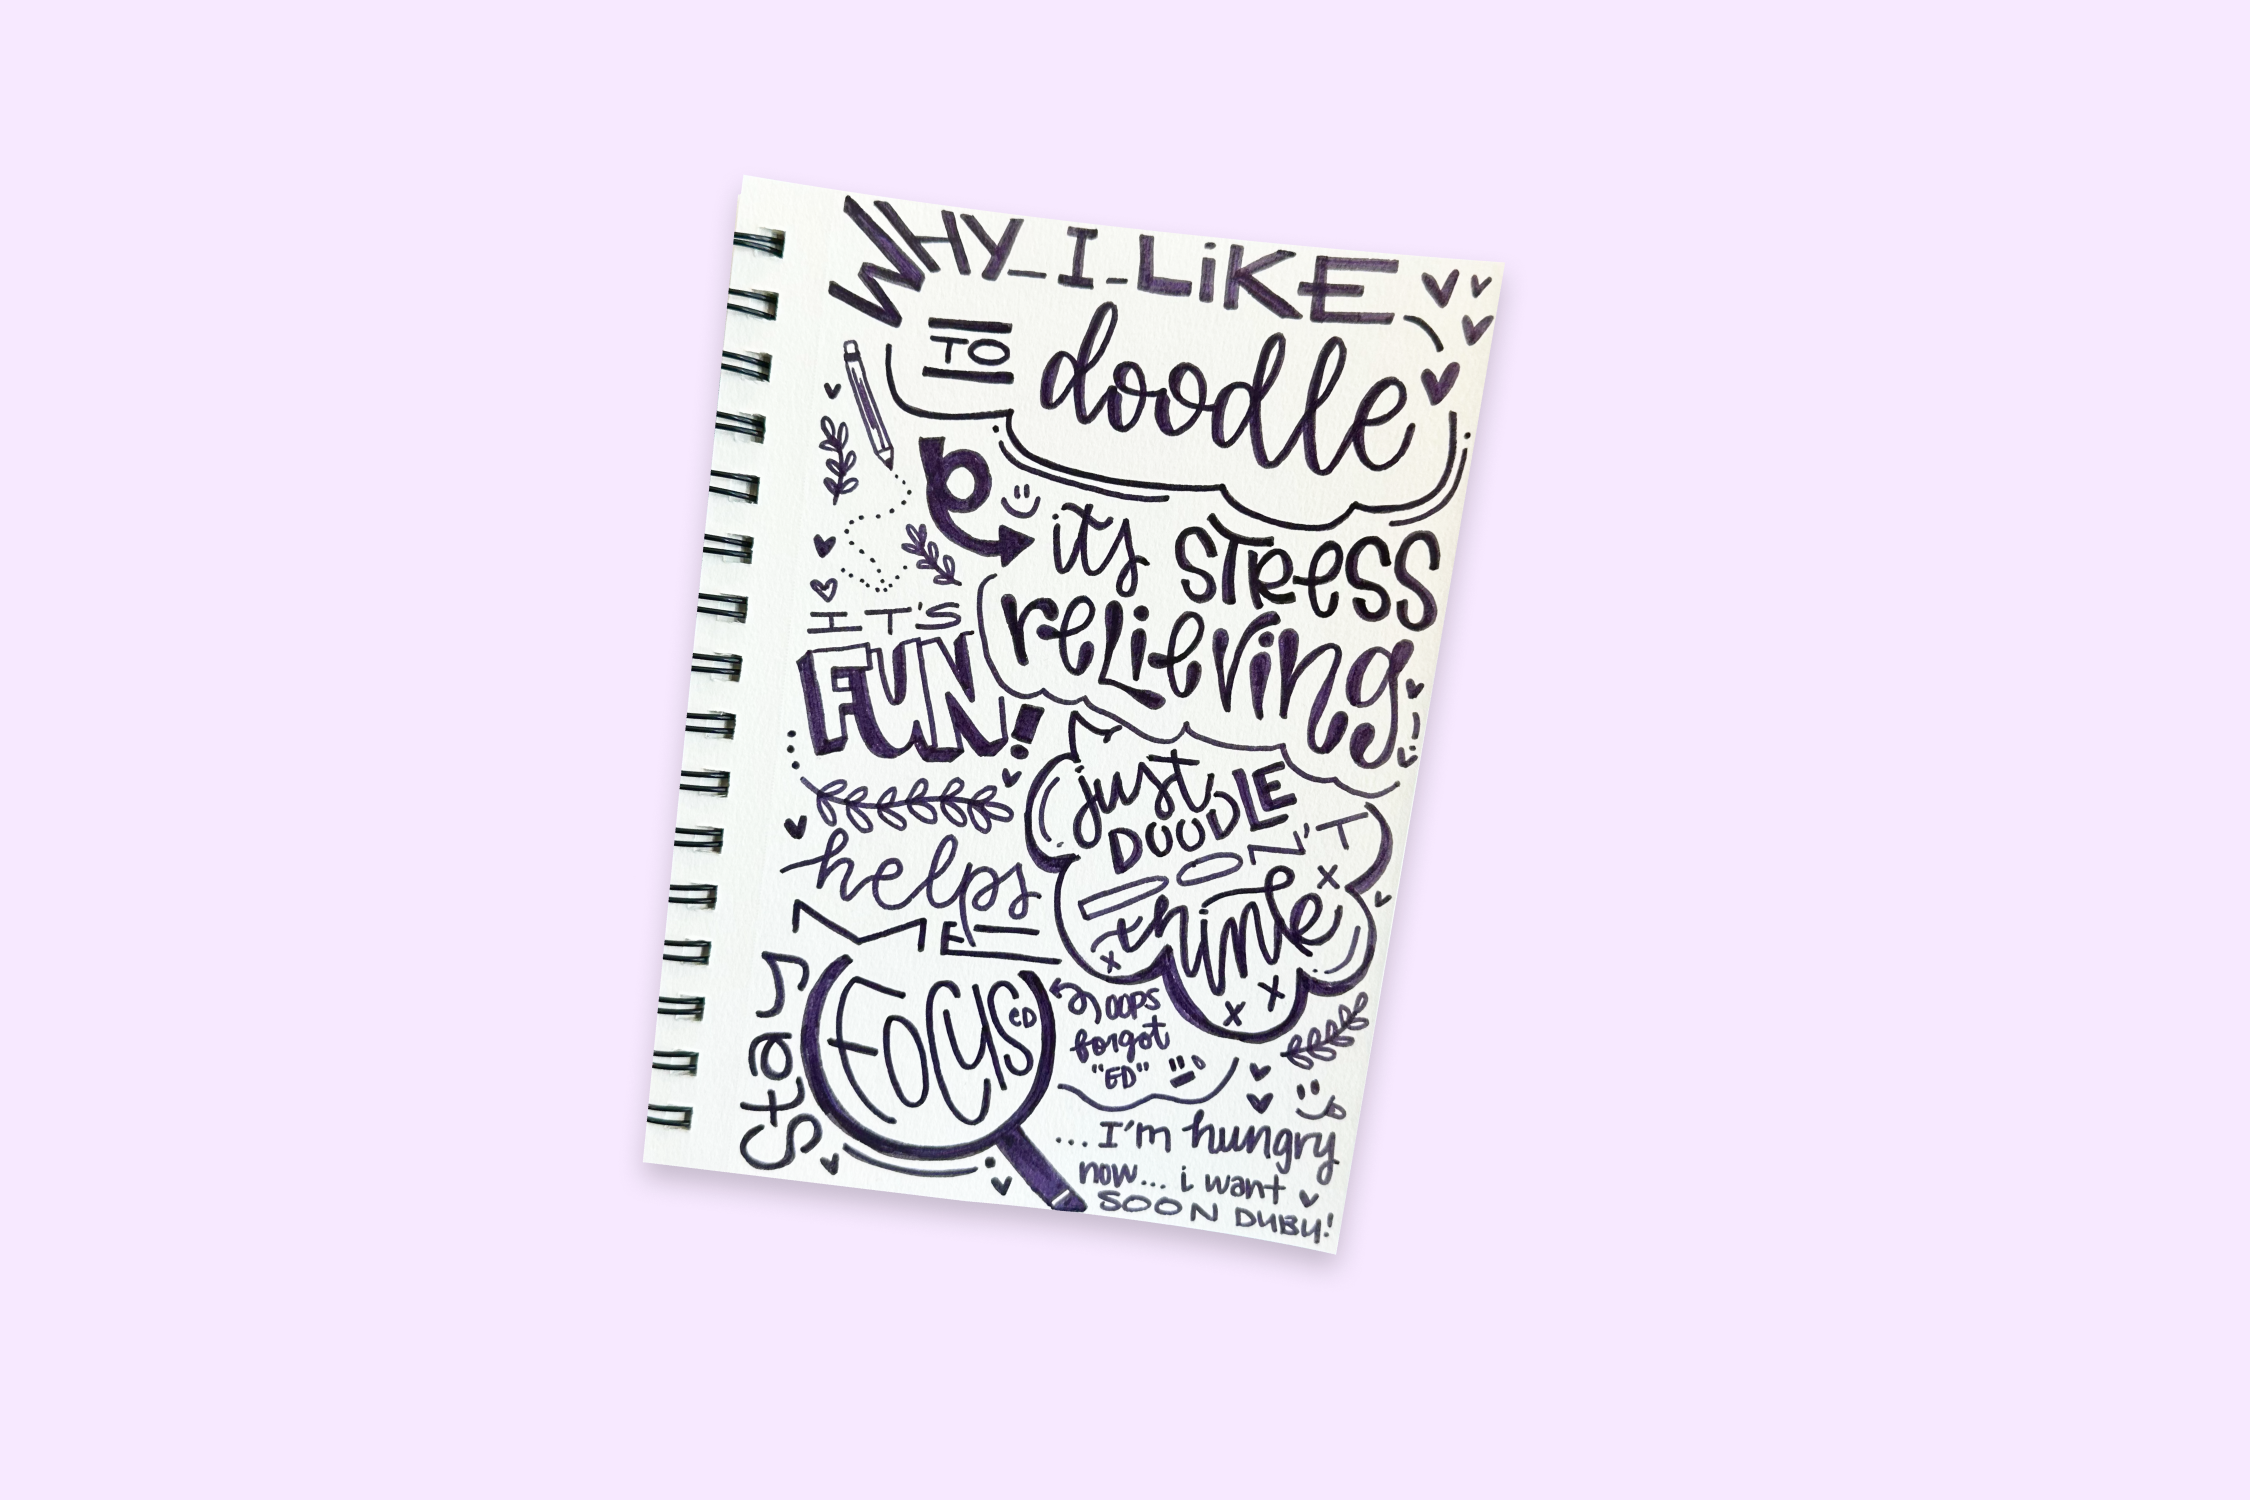 WHY_I_LiKE
TO doodle
its STRESS
RELIEVING
IT'S
FUN!
just
DOODLE
DON'T
think
helps
ME
Stay
FOCUSeD
OOPS
forgot
"ED"
...I'm hungry
now... i want
SOON DUBU!